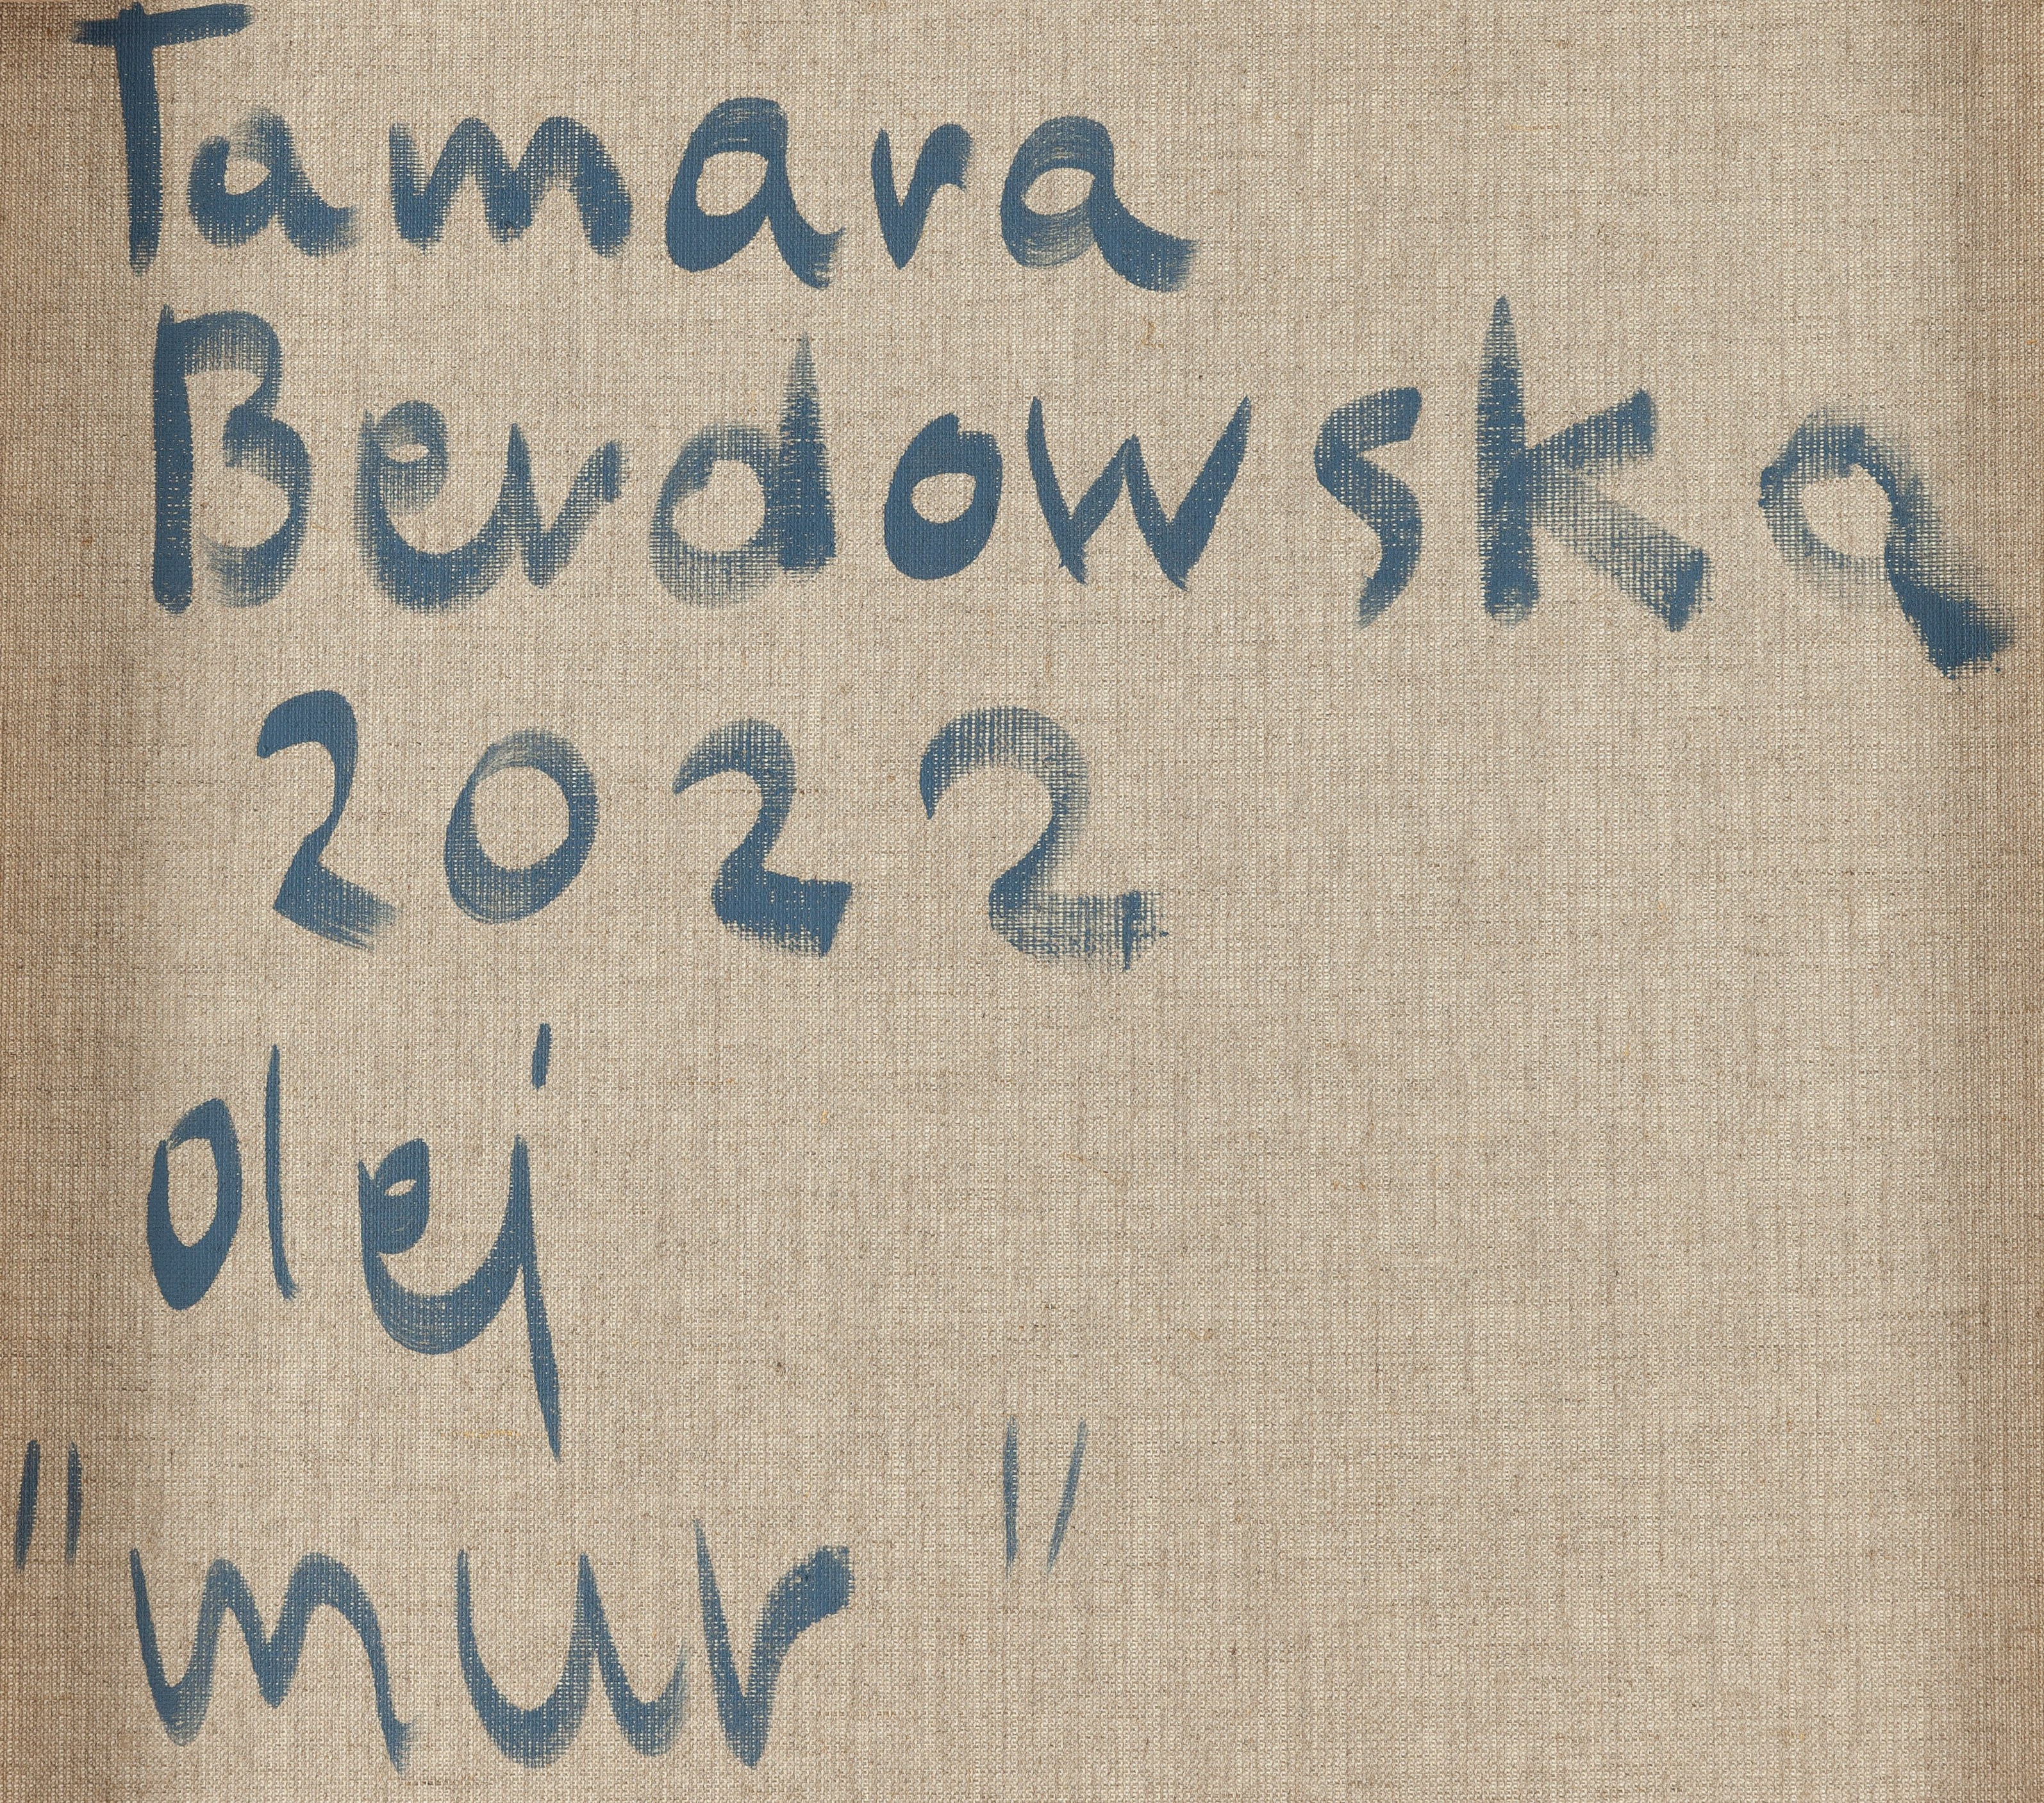 Tamara
Berdowska
2022
olej
"mur"